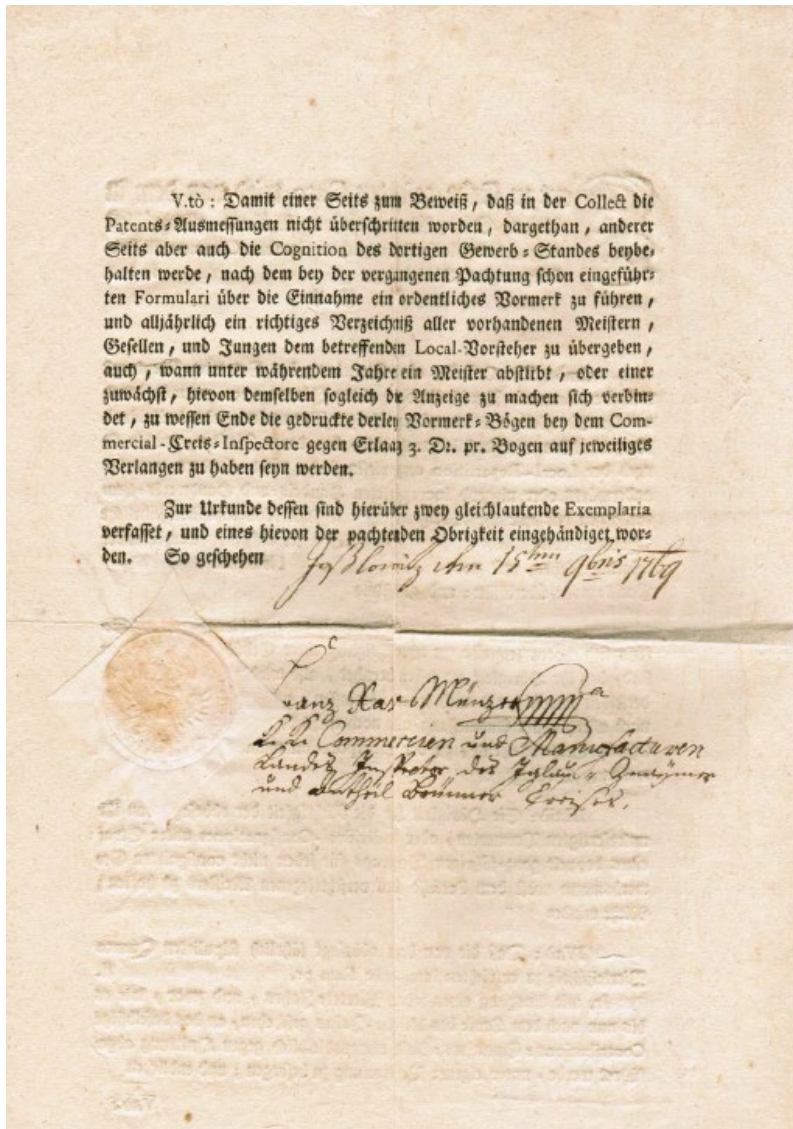 V.tò : Damit einer Seits zum Beweiß, daß in der Collect die
Patents-Ausmessungen nicht überschritten worden, dargethan, anderer
Seits aber auch die Cognition des dortigen Gewerb-Standes beybe-
halten werde, nach dem bey der vergangenen Pachtung schon eingeführ-
ten Formulari über die Einnahme ein ordentliches Vormerk zu führen,
und alljährlich ein richtiges Verzeichniß aller vorhandenen Meistern,
Gesellen, und Jungen dem betreffenden Local-Vorsteher zu übergeben,
auch, wann unter währendem Jahre ein Meister abstirbt, oder einer
zuwächst, hievon demselben sogleich die Anzeige zu machen sich verbin-
det, zu wessen Ende die gedruckte derley Vormerk-Bögen bey dem Com-
mercial-Creis-Inspectore gegen Erlaag 3. Dr. pr. Bogen auf jeweiliges
Verlangen zu haben seyn werden.
Zur Urkunde dessen sind hierüber zwey gleichlautende Exemplaria
verfasset, und eines hievon der pachtenden Obrigkeit eingehändiget wor-
den. So geschehen Joßlowitz den 15ten 9bris 1769
Franz Xav Münzer
K. K. Commercien und Manufacturen
Landes Inspector des Iglauer Znaymer
und Antheil Brünner Creises.